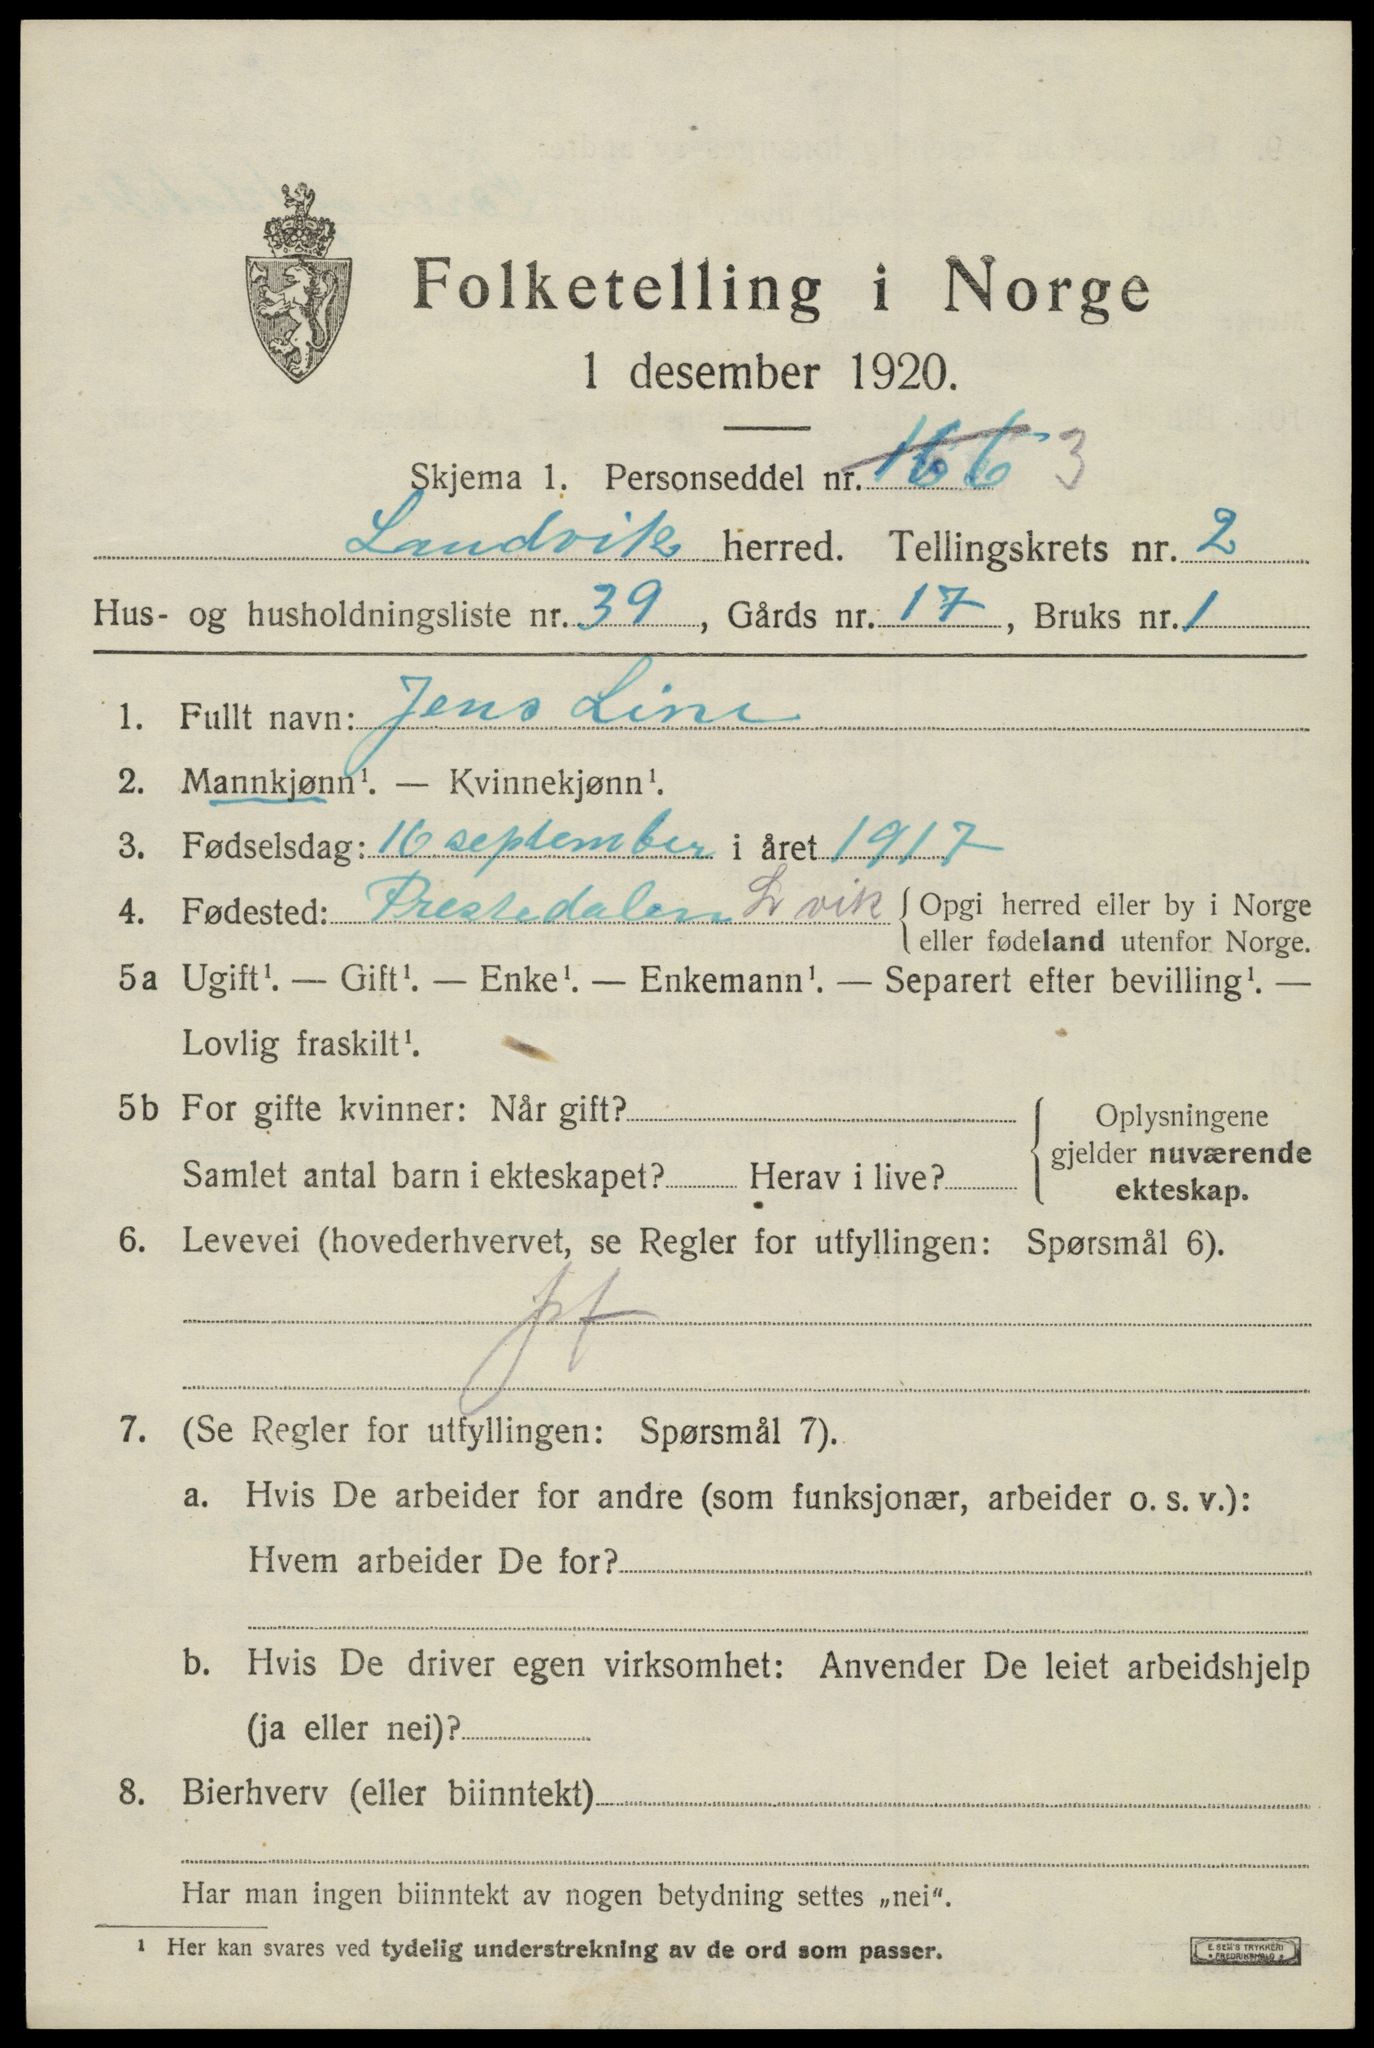 Folketelling i Norge
1 desember 1920.
Skjema 1. Personseddel nr. 166 3
Landvik herred. Tellingskrets nr. 2
Hus- og husholdningsliste nr. 39, Gårds nr. 17, Bruks nr. 1
1. Fullt navn: Jens Line
2. Mannkjønn¹. — Kvinnekjønn¹.
3. Fødselsdag: 16 september i året 1917
4. Fødested: Prestedalen L vik { Opgi herred eller by i Norge
eller fødeland utenfor Norge.
5a Ugift¹. — Gift¹. — Enke¹. — Enkemann¹. — Separert efter bevilling¹. —
Lovlig fraskilt¹.
5b For gifte kvinner: Når gift?
Samlet antal barn i ekteskapet? Herav i live?
{ Oplysningene
gjelder nuværende
ekteskap.
6. Levevei (hovederhvervet, se Regler for utfyllingen: Spørsmål 6).
pf
7. (Se Regler for utfyllingen: Spørsmål 7).
a. Hvis De arbeider for andre (som funksjonær, arbeider o. s. v.):
Hvem arbeider De for?
b. Hvis De driver egen virksomhet: Anvender De leiet arbeidshjelp
(ja eller nei)?
8. Bierhverv (eller biinntekt)
Har man ingen biinntekt av nogen betydning settes „nei“.
¹ Her kan svares ved tydelig understrekning av de ord som passer.
E. SEM'S TRYKKERI
FREDRIKSHALD